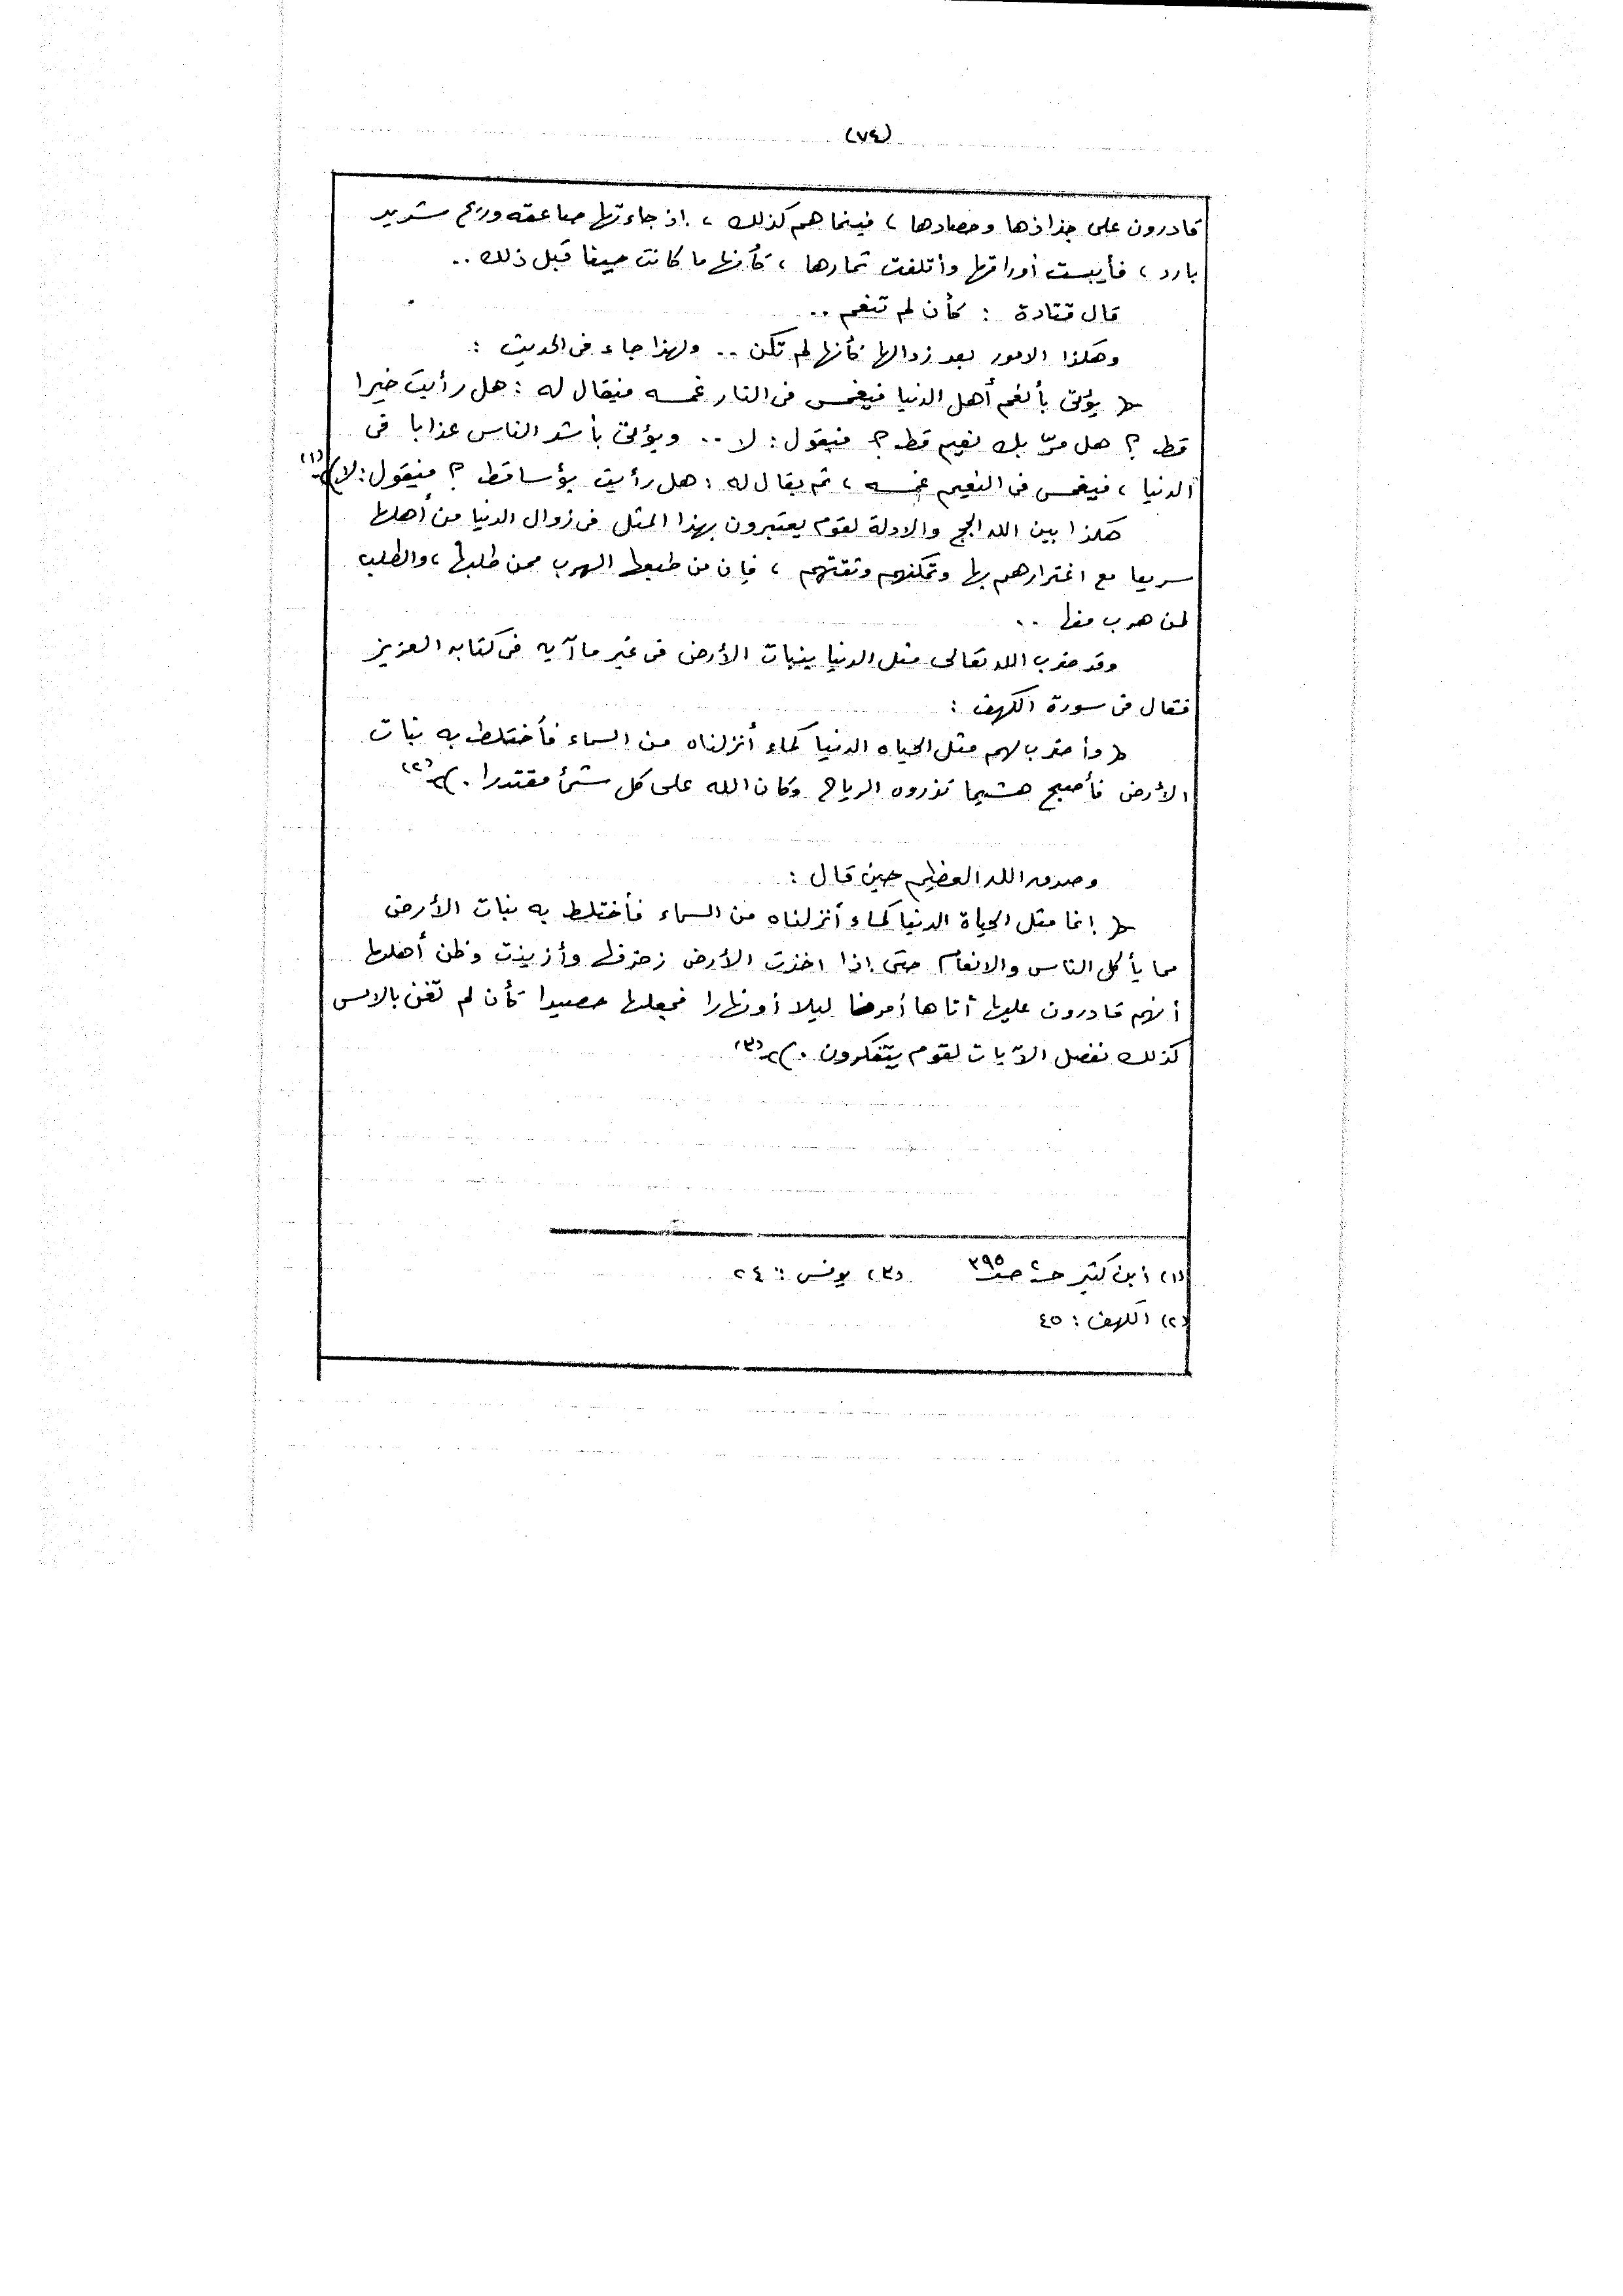 (٧٤)
قادرون على جذاذها وحصادها ، فبينما هم كذلك ، إذ جاءتها صاعقه وريح شديد
بارد ، فأيبست أوراقها وأتلفت ثمارها ، كأنها ما كانت حينا قبل ذلك ..
قال قتادة : كأن لم تنعم ..
وهكذا الامور بعد زوالها كأنها لم تكن .. ولهذا جاء فى الحديث :
( يؤتى بأنعم أهل الدنيا فيغمس فى النار غمسه فيقال له : هل رأيت خيرا
قط ؟ هل مرّ بك نعيم قط ؟ فيقول : لا .. ويؤتى بأشد الناس عذابا فى
الدنيا ، فيغمس فى النعيم غمسه ، ثم يقال له : هل رأيت بؤسا قط ؟ فيقول : لا ) (١)
هكذا بين الله الحجج والادلة لقوم يعتبرون بهذا المثل فى زوال الدنيا من أهلها
سريعا مع اغترارهم بها وتمكنهم وثقتهم ، فإن من طبعها الهرب ممن طلبها ، والطلب
لمن هرب منها ..
وقد ضرب الله تعالى مثل الدنيا بنبات الأرض فى غير ما آيه فى كتابه العزيز
فقال فى سورة الكهف :
( وأضرب لهم مثل الحياه الدنيا كماء أنزلناه من السماء فأختلط به نبات
الأرض فأصبح هشيما تذروه الرياح وكان الله على كل شئ مقتدرا . ) (٢)
وصدق الله العظيم حين قال :
( إنما مثل الحياة الدنيا كماء أنزلناه من السماء فأختلط به نبات الأرض
مما يأكل الناس والانعام حتى إذا اخذت الأرض زخرفها وأزينت وظن أهلها
أنهم قادرون عليها أتاها أمرنا ليلا أو نهارا فجعلها حصيدا كأن لم تغن بالامس
كذلك نفصل الآيات لقوم يتفكرون . ) (٣)
(١) أبن كثير حـ٢ صـ٣٩٥ (٣) يونس : ٢٤
(٢) الكهف : ٤٥